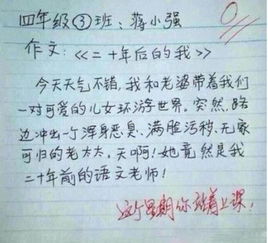 四年级③班：蒋小强
作文：《二十年后的我》
今天天气不错，我和老婆带着我们
一对可爱的儿女环游世界。突然，路
边冲出一个浑身恶臭、满脸污秽、无家
可归的老太太。天啊！她竟然是我
二十年前的语文老师！
这个星期你站着上课。